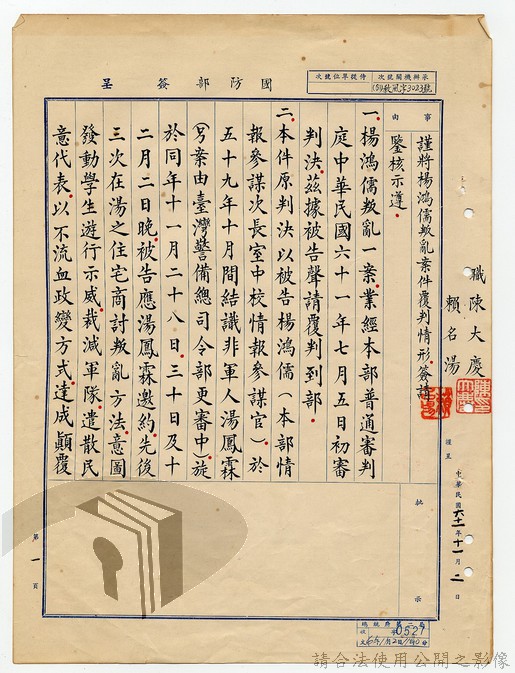 國防部簽呈
承辦機關號次
侍從單位號次
事由
謹將楊鴻儒叛亂案件覆判情形，簽請
鑒核示遵。
職陳大慶
賴名湯
謹呈
中華民國六十一年十一月二日
一、楊鴻儒叛亂一案，業經本部普通審判
庭中華民國六十一年七月五日初審
判決，茲據被告聲請覆判到部。
二、本件原判決以被告楊鴻儒（本部情
報參謀次長室中校情報參謀官）於
五十九年十月間結識非軍人湯鳳霖
（另案由臺灣警備總司令部更審中）旋
於同年十一月二十八日、三十日及十
二月二日晚，被告應湯鳳霖邀約，先後
三次在湯之住宅商討叛亂方法，意圖
發動學生遊行示威，裁減軍隊，遣散民
意代表，以不流血政變方式，達成顛覆
批示
第1頁
請合法使用公開之影像